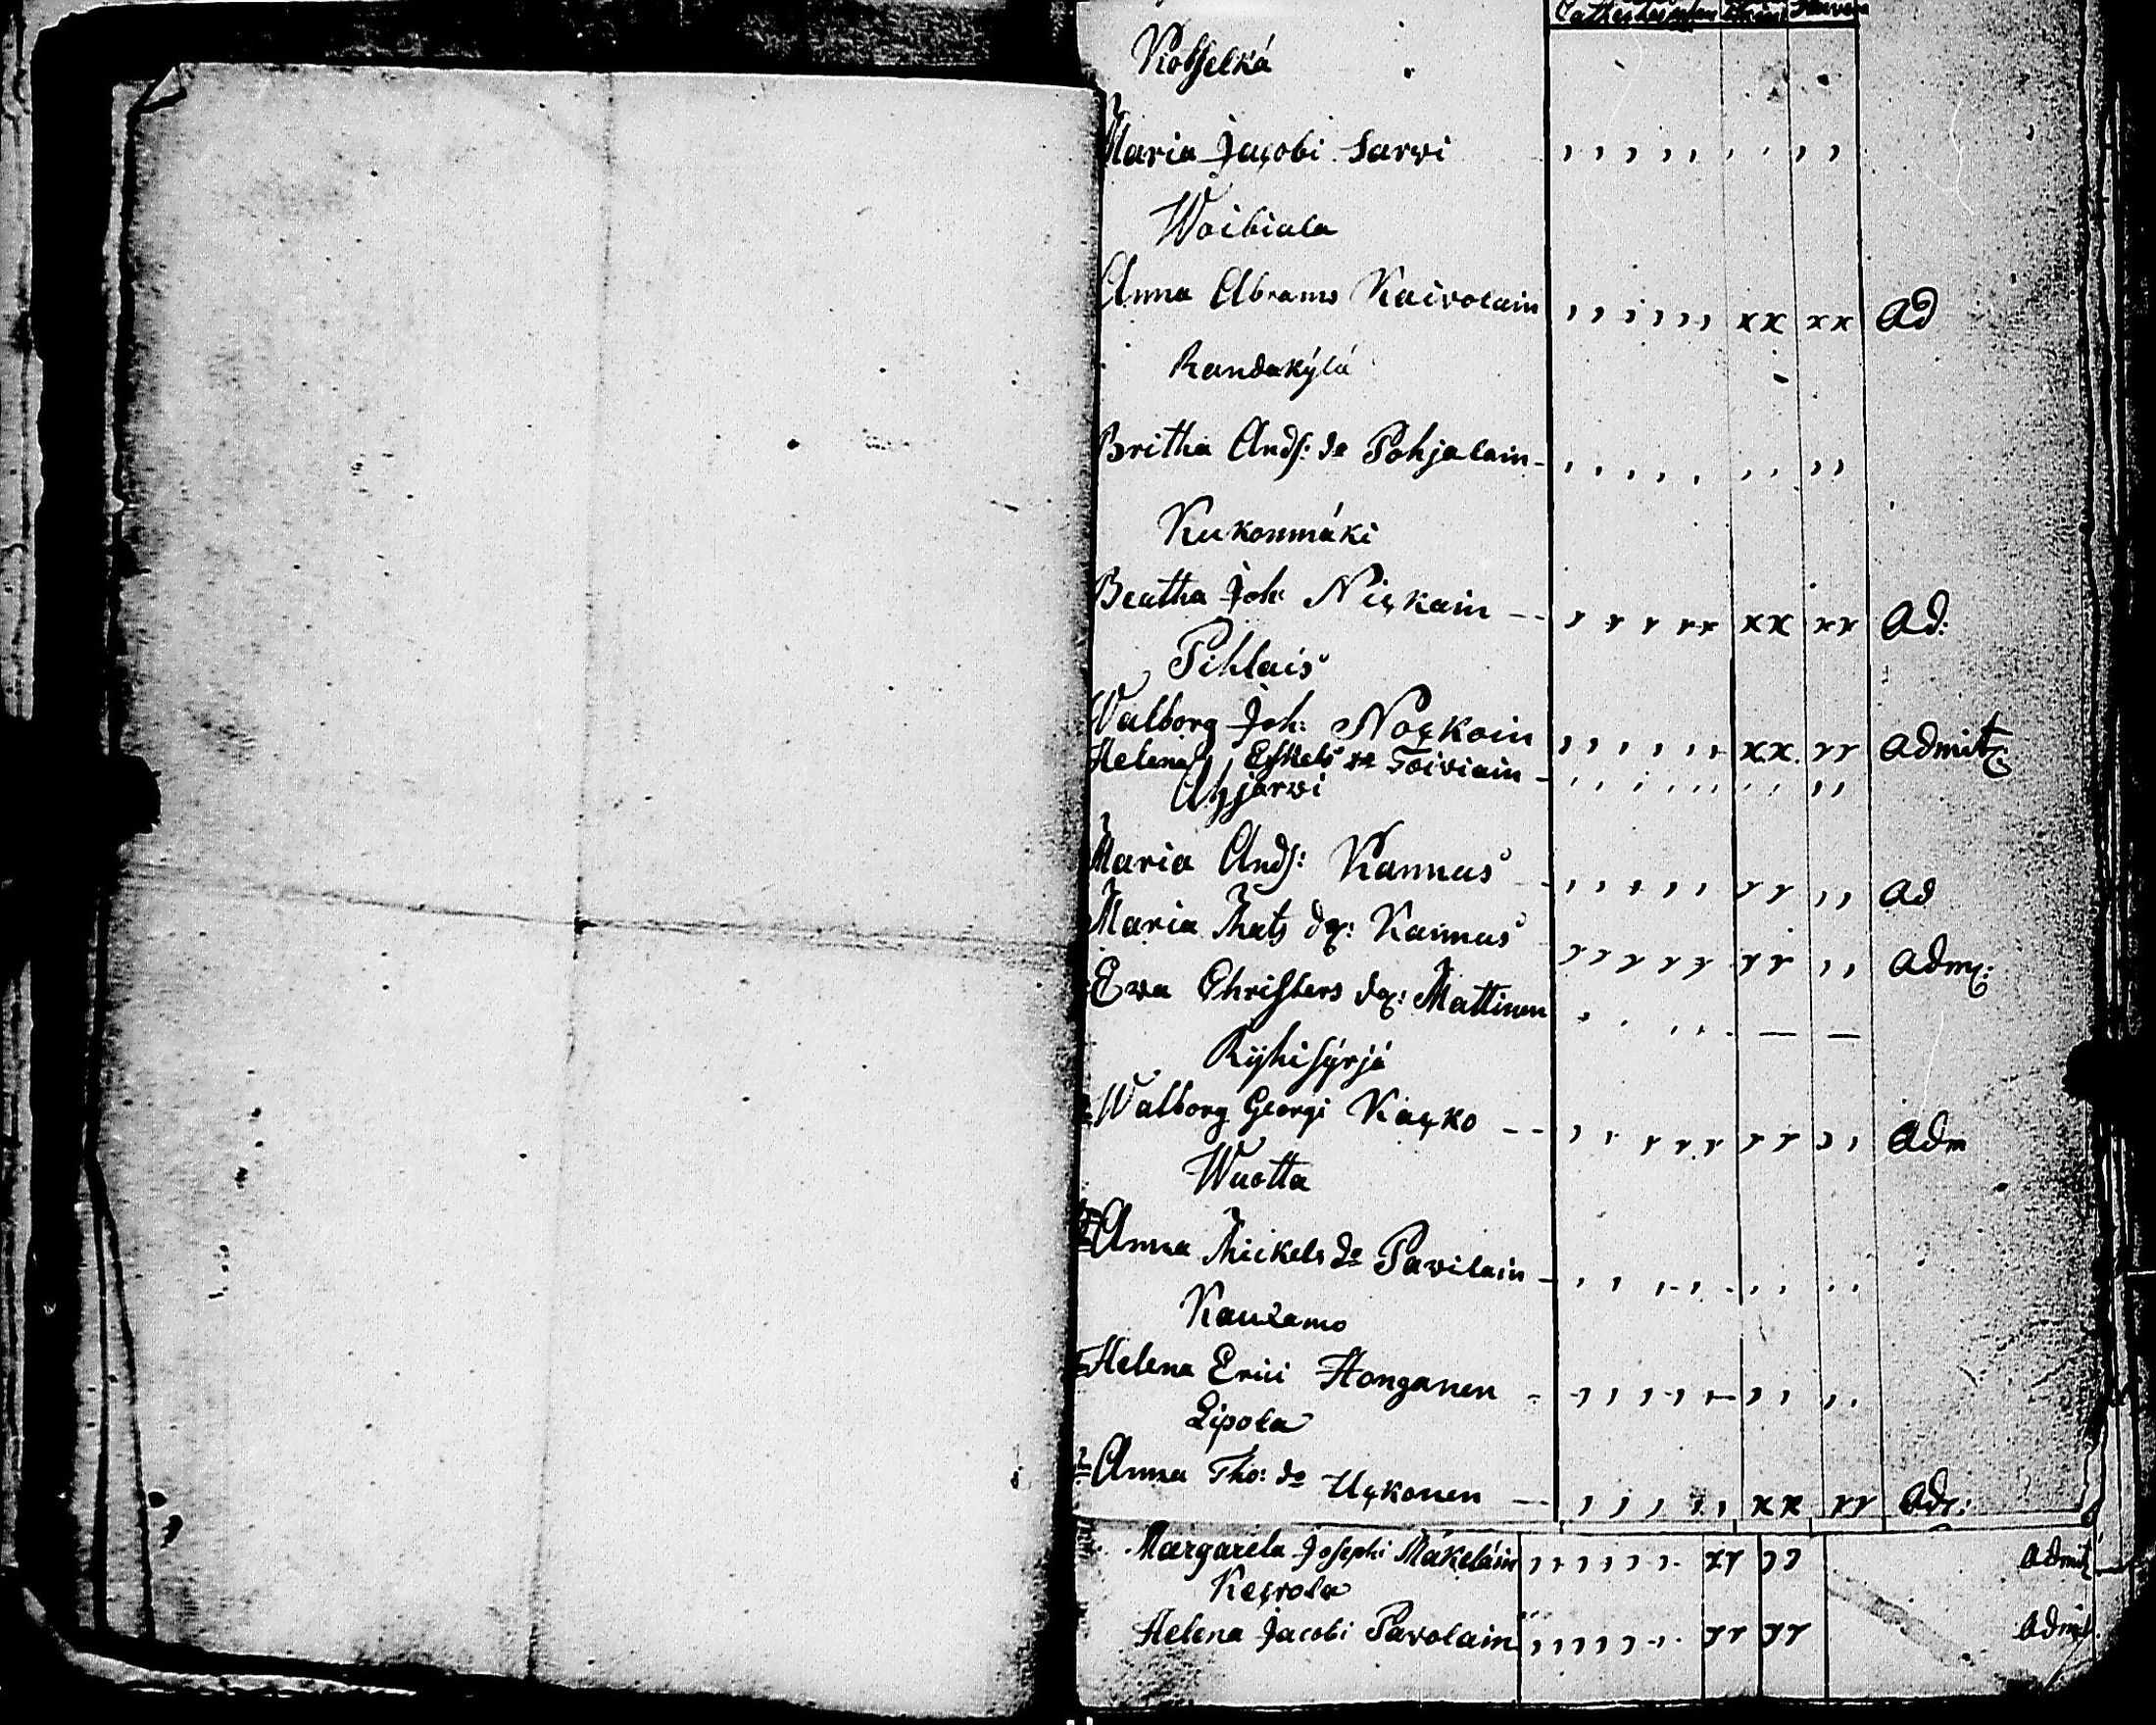 Kotselkä
Maria Jacobi Sarvi
Woibiala
Anna Abrams Kaivolain Ad
Randakylä
Britha Andſ: dr Pohjalain
Kukonmäki
Beatha Joh: Niskain Ad:
Pihlais
Walborg Joh: Noskoin Admit:
Helena Eſkels dr Toiviain
Ahjärvi
Maria Andſ: Kannus Ad
Maria Mats dr: Kannus Adm:
Ewa Chriſters dr: Mattinen
Walborg Georgi Kasko Adm
Wuotta
Anna Mickels dr Pavilain
Kaukamo
Helena Erici Honganen
Lipola
Anna Tho: dr Uskonen Ad:
Margareta Joſephi Mäkeläin Admit
Keſvola
Helena Jacobi Pavolain Admit